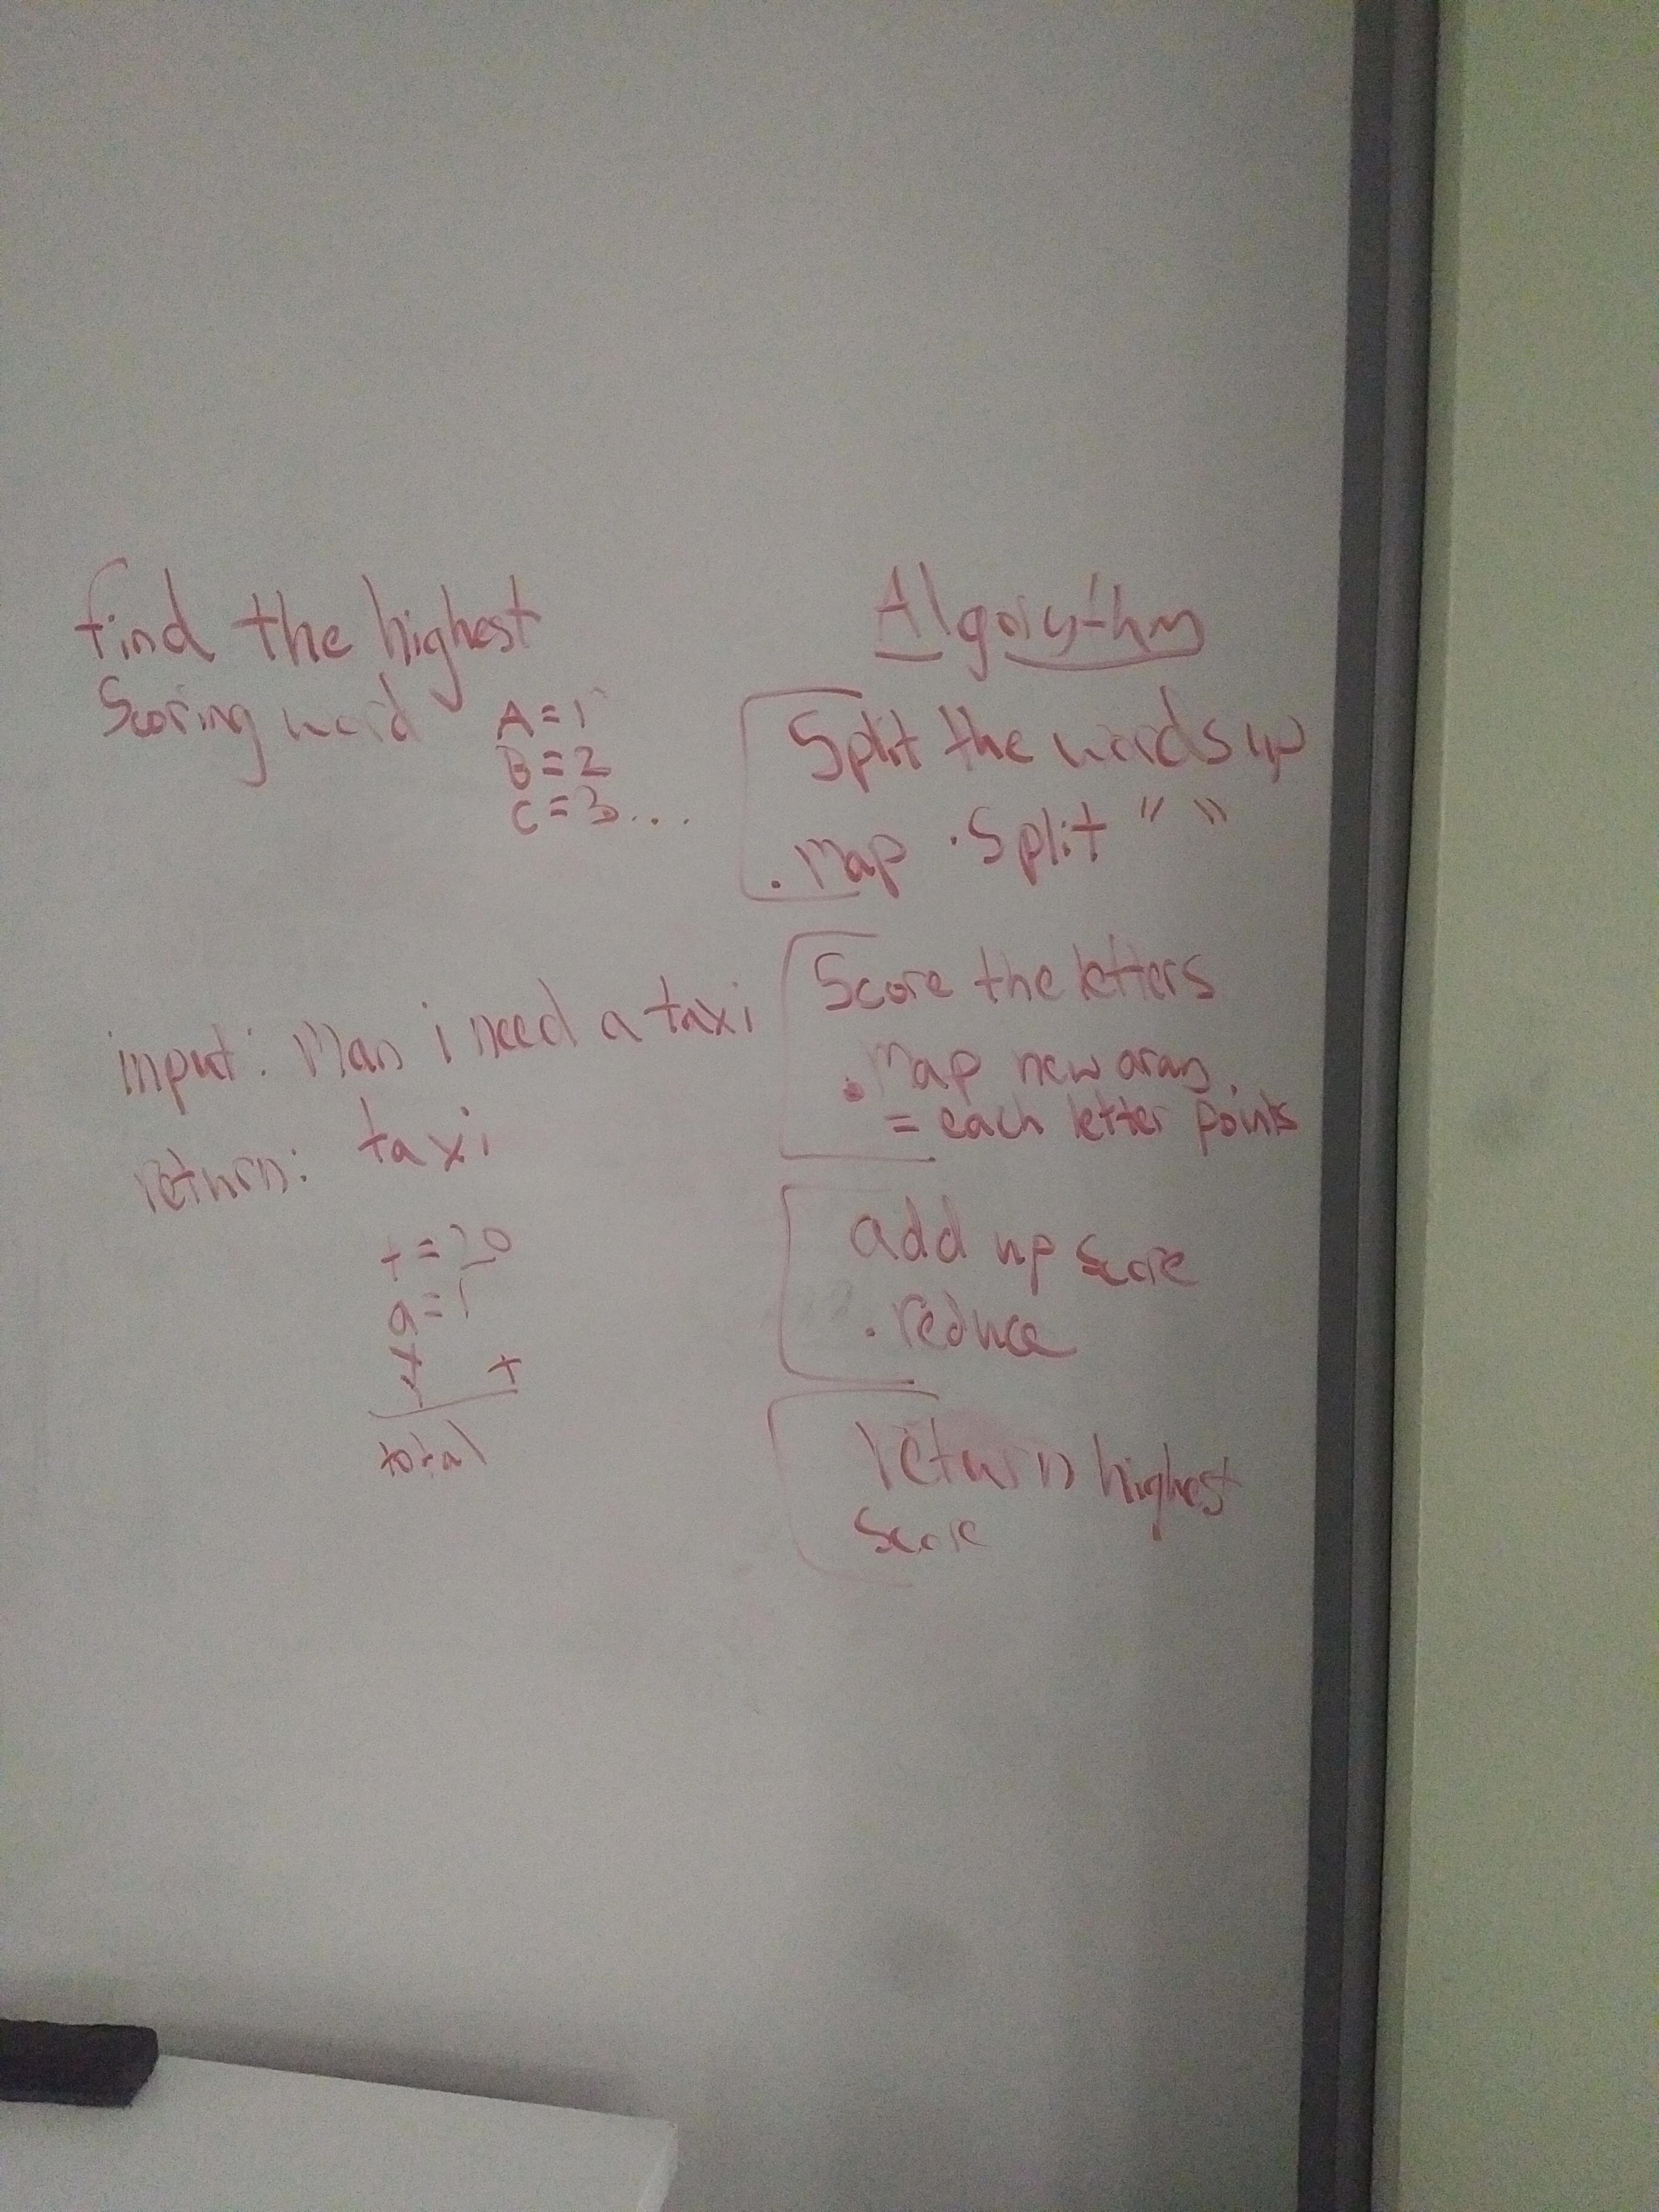 find the highest
Scoring word
A = 1
B = 2
C = 3...
input: Man i need a taxi
return: taxi
t = 20
a = 1
x +
total
Algorythm
Split the words up
. Map . Split " "
Score the letters
. Map new aray.
= each letter points
add up score
. reduce
return highest
Score